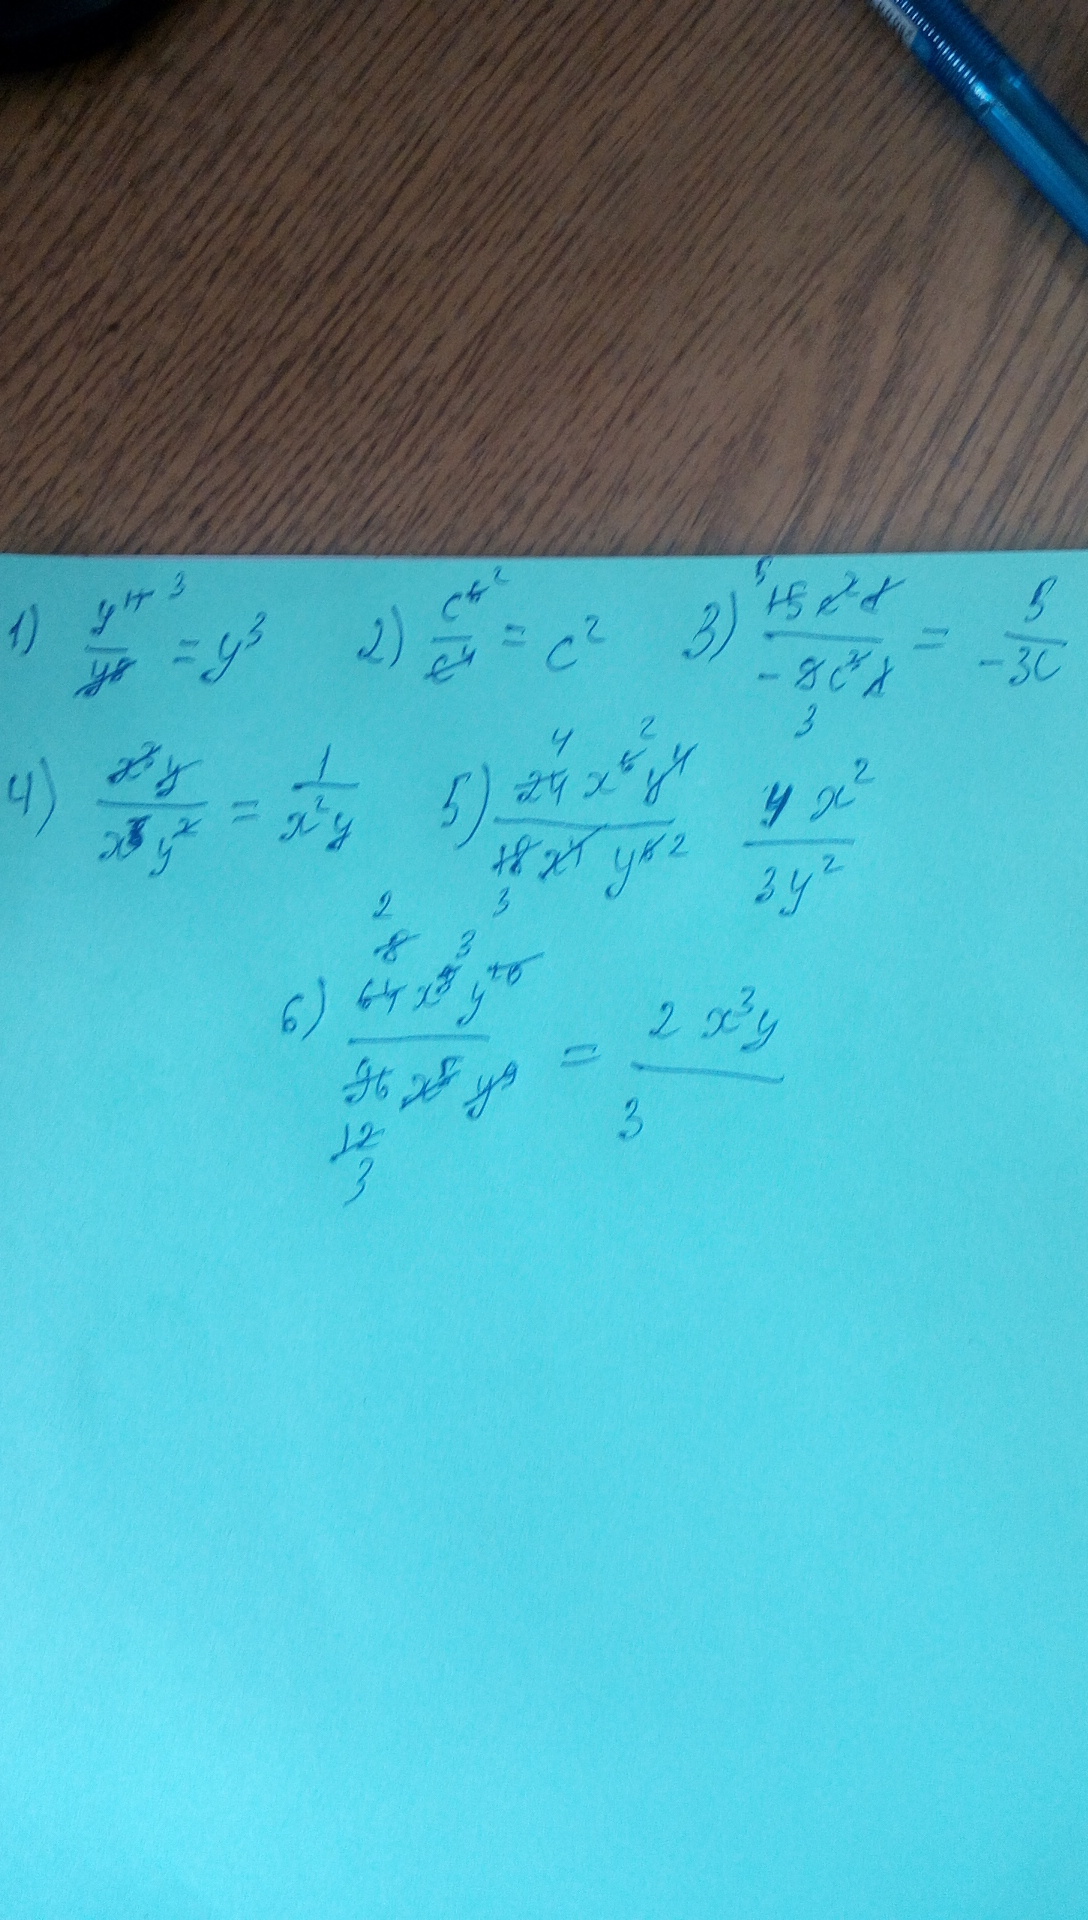 1) y^11 3 / y^8 = y^3 2) c^6 2 / c^4 = c^2 3) 5 15c^2d / -9c^3d 3 = 5 / -3c
4) x^2y / x^4y^2 = 1 / x^2y 5) 4 24x^6 2 y^4 / 18x^4y^6 2 3 4x^2 / 3y^2
6) 2 8 64x^8 3 y^10 / 96x^5y^9 12 3 = 2x^3y / 3